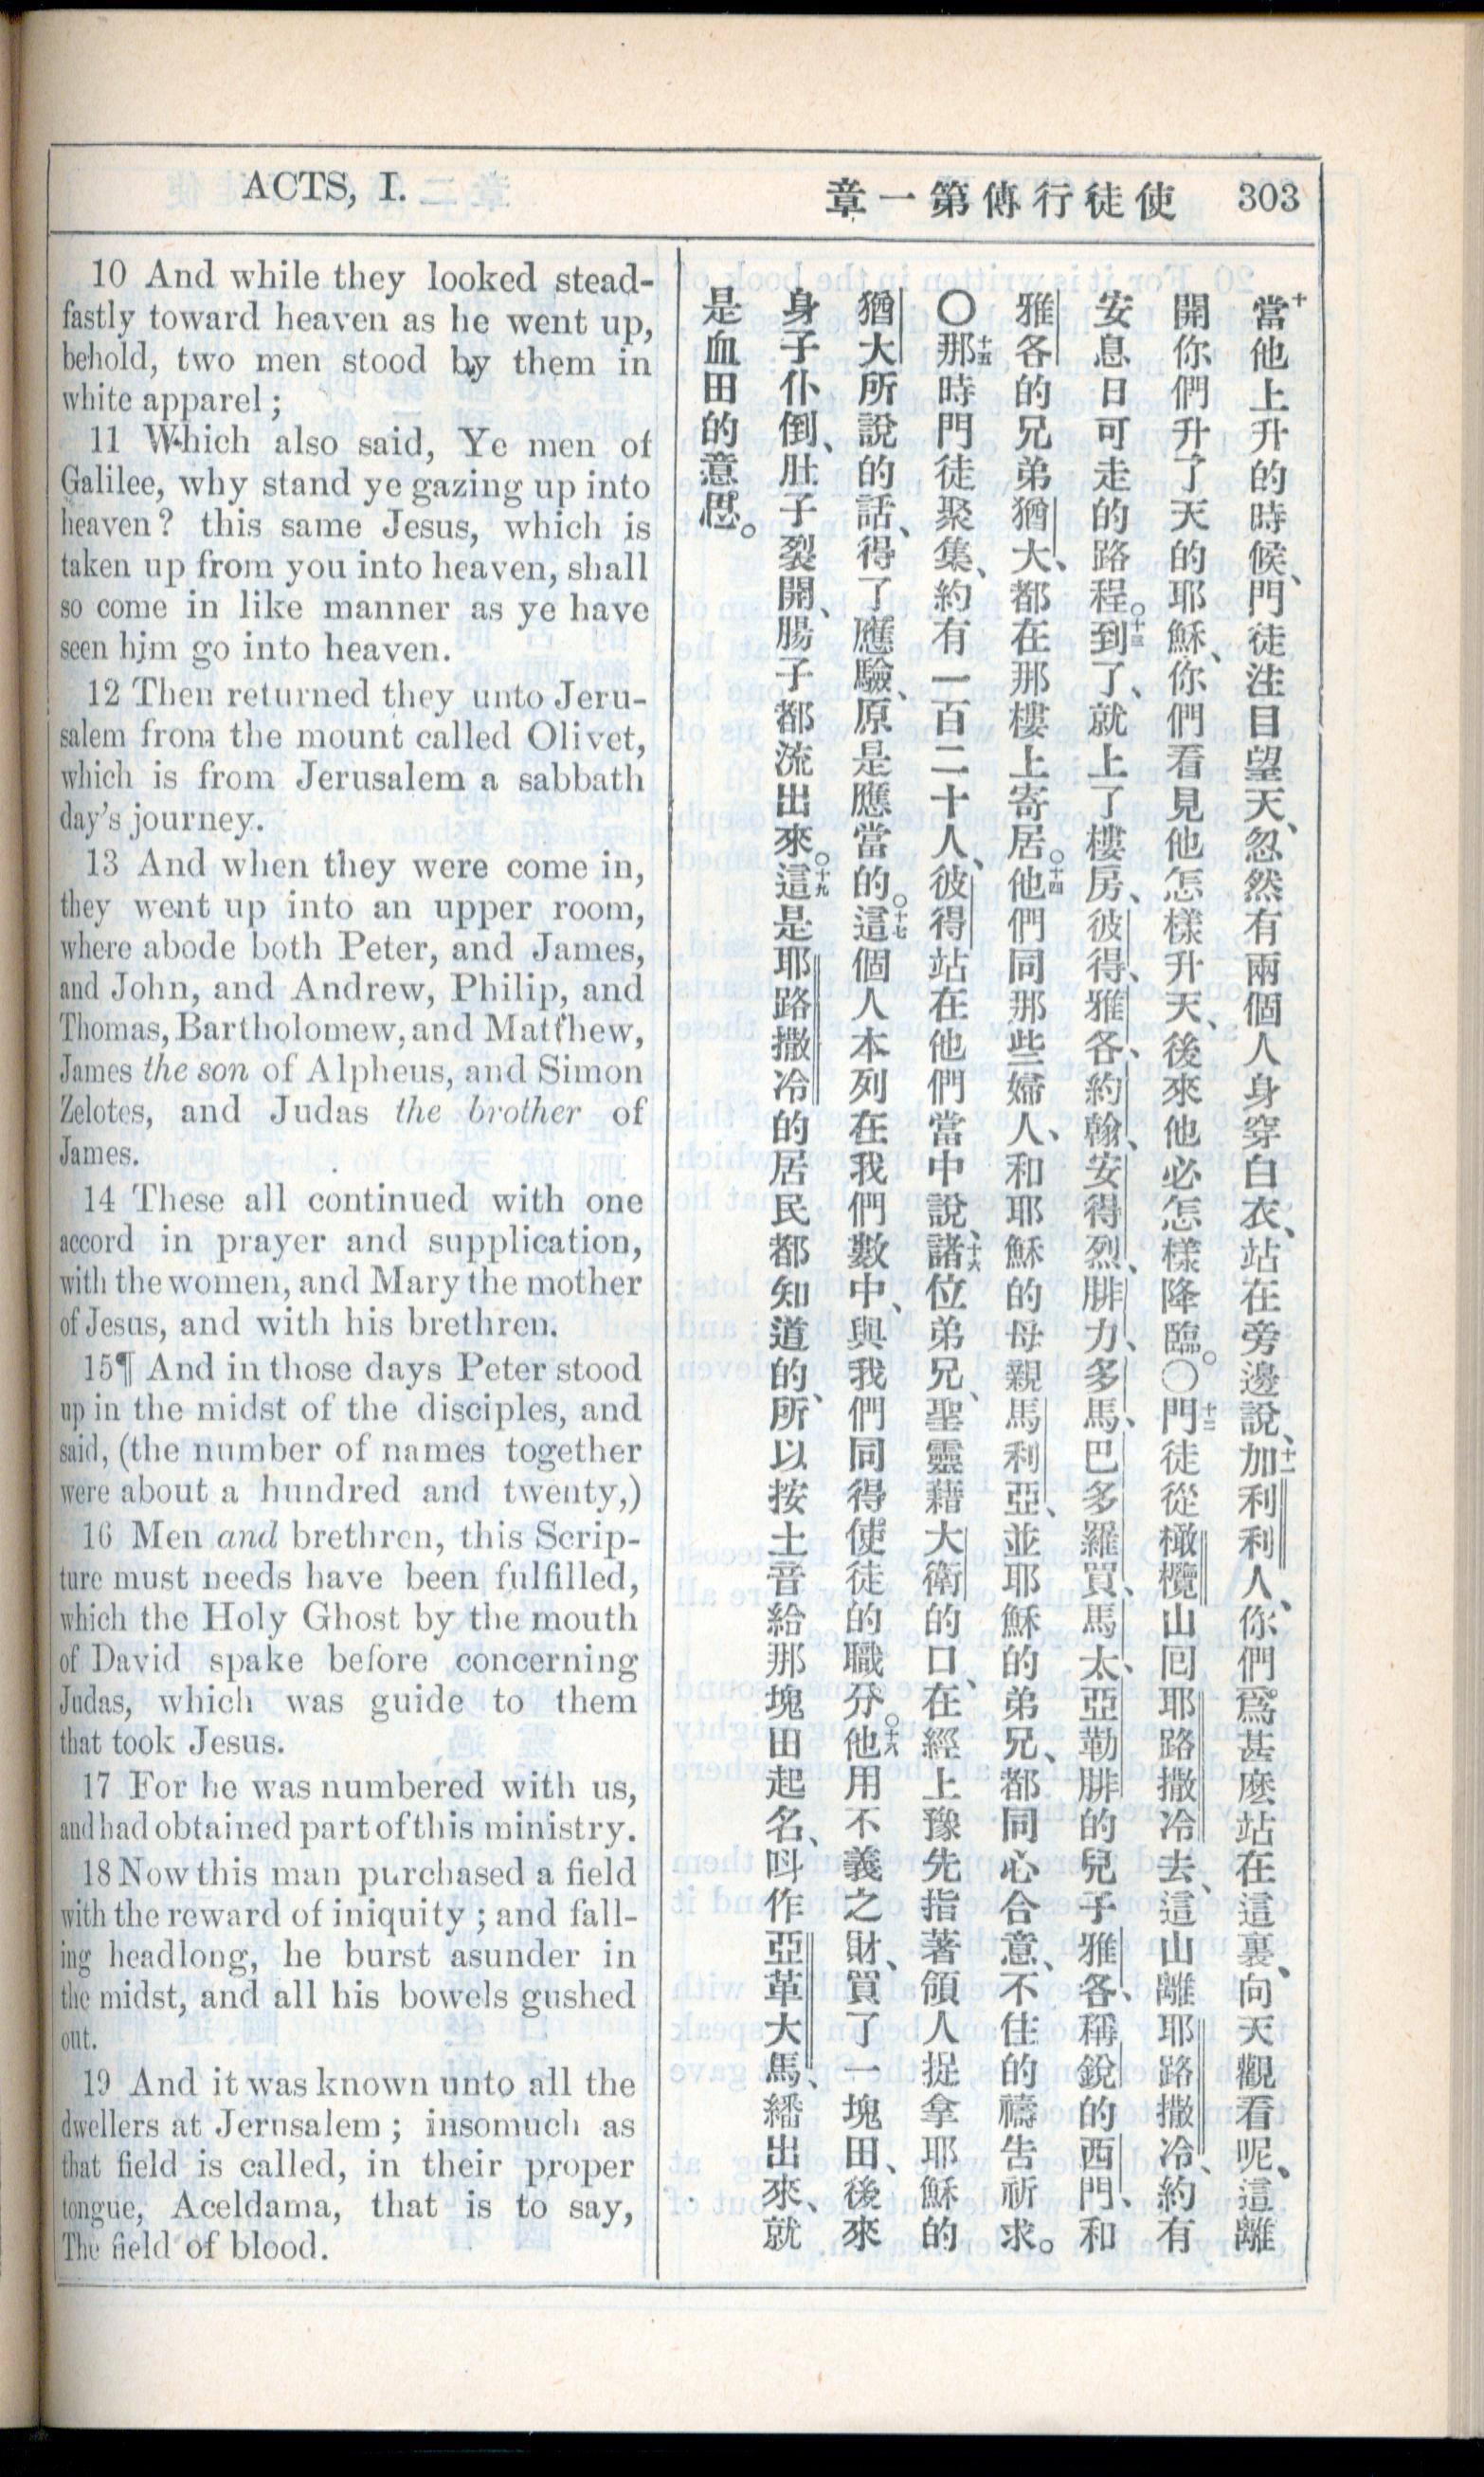 ACTS, I.
使徒行傳第一章 303
10 And while they looked stead-
fastly toward heaven as he went up,
behold, two men stood by them in
white apparel ;
11 Which also said, Ye men of
Galilee, why stand ye gazing up into
heaven? this same Jesus, which is
taken up from you into heaven, shall
so come in like manner as ye have
seen him go into heaven.
12 Then returned they unto Jeru-
salem from the mount called Olivet,
which is from Jerusalem a sabbath
day's journey.
13 And when they were come in,
they went up into an upper room,
where abode both Peter, and James,
and John, and Andrew, Philip, and
Thomas, Bartholomew, and Matthew,
James the son of Alpheus, and Simon
Zelotes, and Judas the brother of
James.
14 These all continued with one
accord in prayer and supplication,
with the women, and Mary the mother
of Jesus, and with his brethren.
15¶ And in those days Peter stood
up in the midst of the disciples, and
said, (the number of names together
were about a hundred and twenty,)
16 Men and brethren, this Scrip-
ture must needs have been fulfilled,
which the Holy Ghost by the mouth
of David spake before concerning
Judas, which was guide to them
that took Jesus.
17 For he was numbered with us,
and had obtained part of this ministry.
18 Now this man purchased a field
with the reward of iniquity ; and fall-
ing headlong, he burst asunder in
the midst, and all his bowels gushed
out.
19 And it was known unto all the
dwellers at Jerusalem ; insomuch as
that field is called, in their proper
tongue, Aceldama, that is to say,
The field of blood.
十當他上升的時候、門徒注目望天、忽然有兩個人身穿白衣、站在旁邊說、十一加利利人、你們爲甚麽站在這裏、向天觀看呢、這離
開你們升了天的耶穌、你們看見他怎樣升天、後來他必怎樣降臨。〇十二門徒從橄欖山囘耶路撒冷去、這山離耶路撒冷、約有
安息日可走的路程。十三到了、就上了樓房、彼得、雅各、約翰、安得烈、腓力、多馬、巴多羅買、馬太、亞勒腓的兒子雅各、稱銳的西門、和
雅各的兄弟猶大、都在那樓上寄居。十四他們同那些婦人、和耶穌的母親馬利亞、並耶穌的弟兄、都同心合意、不住的禱吿祈求。
〇十五那時門徒聚集、約有一百二十人、彼得站在他們當中說、十六諸位弟兄、聖靈藉大衛的口、在經上豫先指著領人捉拿耶穌的
猶大所說的話、得了應驗、原是應當的。十七這個人本列在我們數中、與我們同得使徒的職分。十八他用不義之財、買了一塊田、後來
身子仆倒、肚子裂開、腸子都流出來。十九這是耶路撒冷的居民都知道的、所以按土音給那塊田起名、呌作亞革大馬、繙出來、就
是血田的意思。